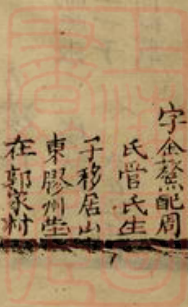 字金鰲配周
氏管氏生
子移居山
東膠州塋
在郭家村